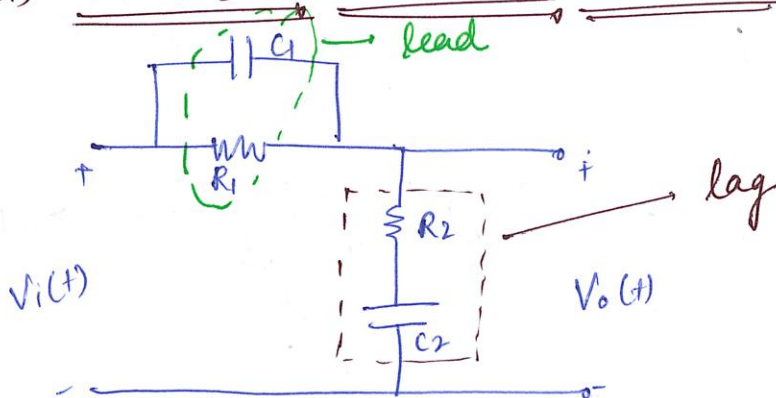 C1
lead
+
R1
+
lag
R2
Vi(t)
Vo(t)
C2
-
-